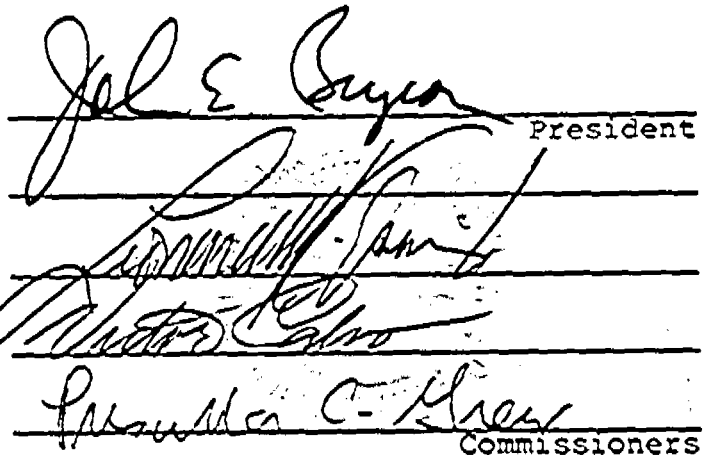 John E Bryson
President
Victor Calvo
Priscilla C. Grew
Commissioners